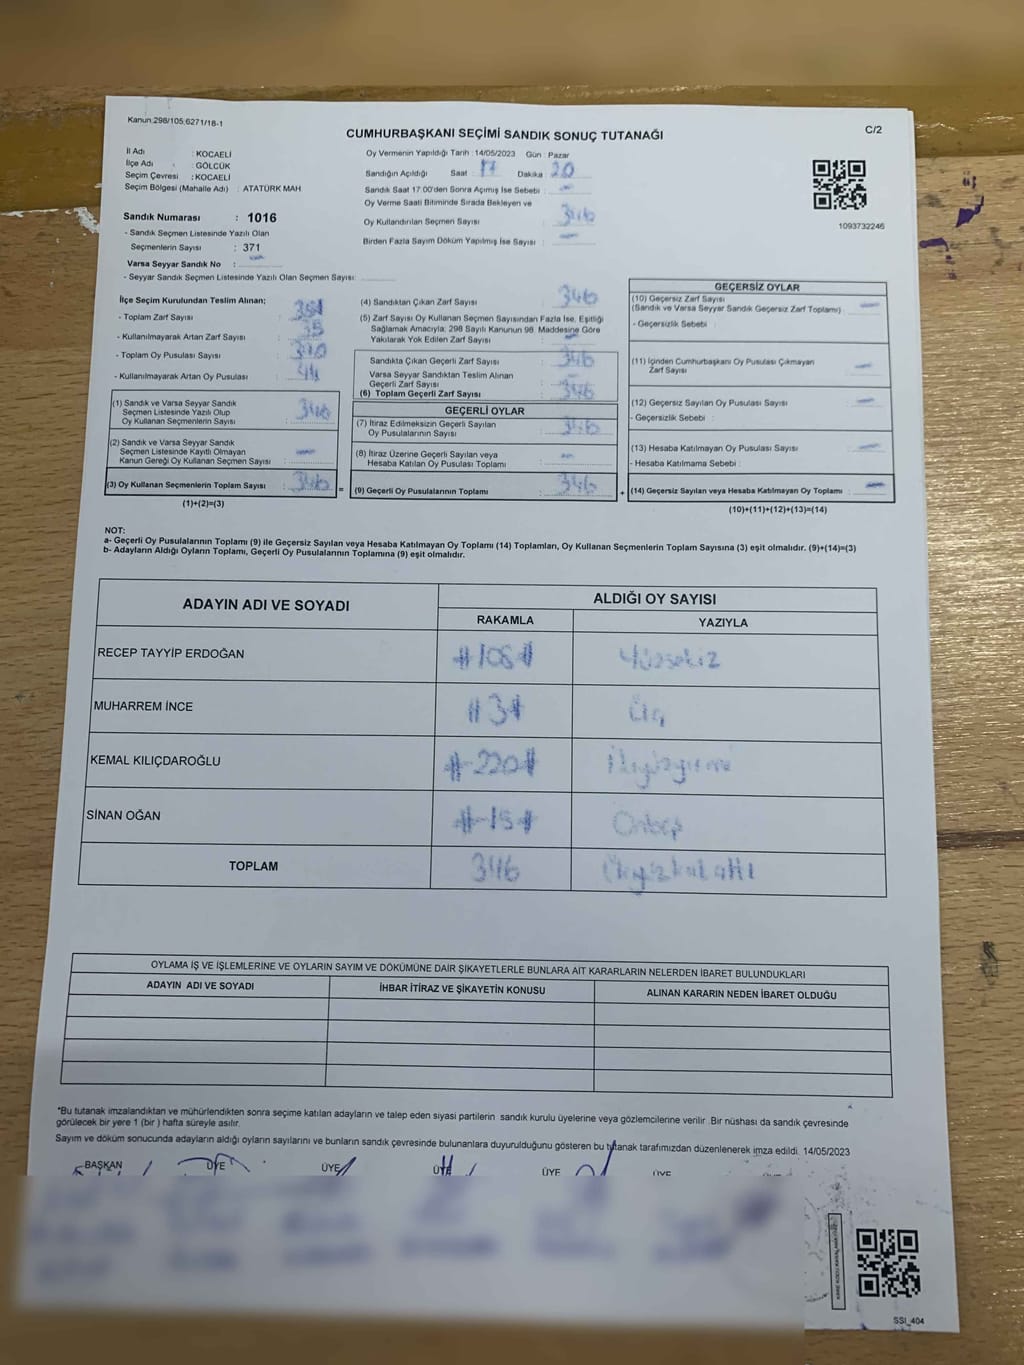 Kanun:298/105;6271/18-1
C/2
CUMHURBAŞKANI SEÇİMİ SANDIK SONUÇ TUTANAĞI
İl Adı : KOCAELİ
İlçe Adı : GÖLCÜK
Seçim Çevresi : KOCAELİ
Seçim Bölgesi (Mahalle Adı) : ATATÜRK MAH
Sandık Numarası : 1016
- Sandık Seçmen Listesinde Yazılı Olan
Seçmenlerin Sayısı : 371
Varsa Seyyar Sandık No :
- Seyyar Sandık Seçmen Listesinde Yazılı Olan Seçmen Sayısı:
Oy Vermenin Yapıldığı Tarih :14/05/2023 Gün : Pazar
Sandığın Açıldığı Saat : 17 Dakika : 20
Sandık Saat 17:00'den Sonra Açımış İse Sebebi :
Oy Verme Saati Bitiminde Sırada Bekleyen ve
Oy Kullandırılan Seçmen Sayısı : 346
Birden Fazla Sayım Döküm Yapılmış İse Sayısı :
1093732246
İlçe Seçim Kurulundan Teslim Alınan;
- Toplam Zarf Sayısı :
- Kullanılmayarak Artan Zarf Sayısı : 35
- Toplam Oy Pusulası Sayısı :
- Kullanılmayarak Artan Oy Pusulası : 44
(1) Sandık ve Varsa Seyyar Sandık
Seçmen Listesinde Yazılı Olup
Oy Kullanan Seçmenlerin Sayısı : 346
(2) Sandık ve Varsa Seyyar Sandık
Seçmen Listesinde Kayıtlı Olmayan
Kanun Gereği Oy Kullanan Seçmen Sayısı :
(3) Oy Kullanan Seçmenlerin Toplam Sayısı : 346 =
(1)+(2)=(3)
(4) Sandıktan Çıkan Zarf Sayısı : 346
(5) Zarf Sayısı Oy Kullanan Seçmen Sayısından Fazla İse, Eşitliği
Sağlamak Amacıyla; 298 Sayılı Kanunun 98. Maddesine Göre
Yakılarak Yok Edilen Zarf Sayısı :
Sandıkta Çıkan Geçerli Zarf Sayısı : 346
Varsa Seyyar Sandıktan Teslim Alınan
Geçerli Zarf Sayısı :
(6) Toplam Geçerli Zarf Sayısı : 346
GEÇERLİ OYLAR
(7) İtiraz Edilmeksizin Geçerli Sayılan
Oy Pusulalarının Sayısı : 346
(8) İtiraz Üzerine Geçerli Sayılan veya
Hesaba Katılan Oy Pusulası Toplamı :
(9) Geçerli Oy Pusulalarının Toplamı : 346 +
GEÇERSİZ OYLAR
(10) Geçersiz Zarf Sayısı
(Sandık ve Varsa Seyyar Sandık Geçersiz Zarf Toplamı) :
- Geçersizlik Sebebi :
(11) İçinden Cumhurbaşkanı Oy Pusulası Çıkmayan
Zarf Sayısı :
(12) Geçersiz Sayılan Oy Pusulası Sayısı :
- Geçersizlik Sebebi :
(13) Hesaba Katılmayan Oy Pusulası Sayısı :
- Hesaba Katılmama Sebebi :
(14) Geçersiz Sayılan veya Hesaba Katılmayan Oy Toplamı :
(10)+(11)+(12)+(13)=(14)
NOT:
a- Geçerli Oy Pusulalarının Toplamı (9) ile Geçersiz Sayılan veya Hesaba Katılmayan Oy Toplamı (14) Toplamları, Oy Kullanan Seçmenlerin Toplam Sayısına (3) eşit olmalıdır. (9)+(14)=(3)
b- Adayların Aldığı Oyların Toplamı, Geçerli Oy Pusulalarının Toplamına (9) eşit olmalıdır.
ADAYIN ADI VE SOYADI
ALDIĞI OY SAYISI
RAKAMLA YAZIYLA
RECEP TAYYİP ERDOĞAN #108# Yüzsekiz
MUHARREM İNCE #3# Üç
KEMAL KILIÇDAROĞLU #-220# İkiyüzyirmi
SİNAN OĞAN #-15# Onbeş
TOPLAM 346 Üçyüzkırkaltı
OYLAMA İŞ VE İŞLEMLERİNE VE OYLARIN SAYIM VE DÖKÜMÜNE DAİR ŞİKAYETLERLE BUNLARA AİT KARARLARIN NELERDEN İBARET BULUNDUKLARI
ADAYIN ADI VE SOYADI İHBAR İTİRAZ VE ŞİKAYETİN KONUSU ALINAN KARARIN NEDEN İBARET OLDUĞU
*Bu tutanak imzalandıktan ve mühürlendikten sonra seçime katılan adayların ve talep eden siyasi partilerin sandık kurulu üyelerine veya gözlemcilerine verilir. Bir nüshası da sandık çevresinde
görülecek bir yere 1 (bir ) hafta süreyle asılır.
Sayım ve döküm sonucunda adayların aldığı oyların sayılarını ve bunların sandık çevresinde bulunanlara duyurulduğunu gösteren bu tutanak tarafımızdan düzenlenerek imza edildi. 14/05/2023
BAŞKAN ÜYE ÜYE ÜYE ÜYE ÜYE
SSI_404